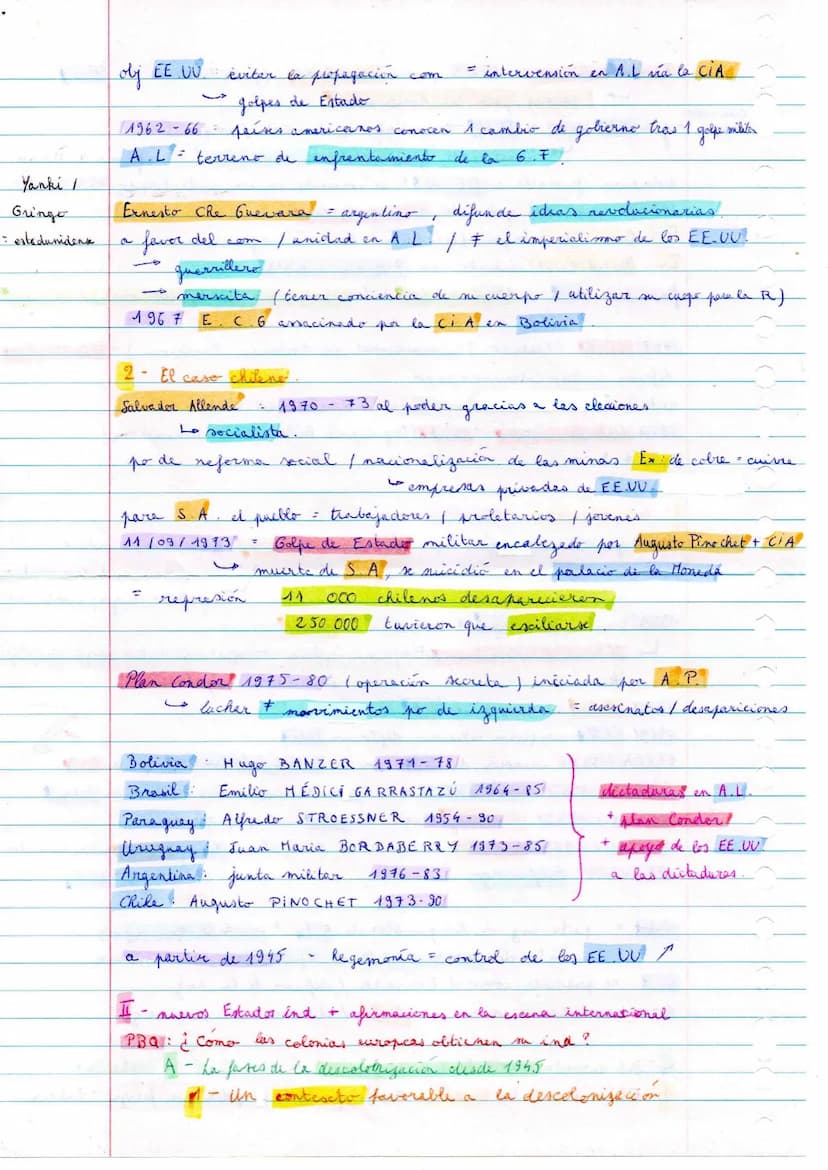 obj EE.UU : evitar la propagación com = intervensión en A.L vía la CiA
→ golpes de Estado
1962-66 : países americanos conocen 1 cambio de gobierno tras 1 golpe militar
A.L = terreno de enfrentamiento de la G.F.
Yanki /
Gringo
= estadunidense
Ernesto Che Guevara = argentino, difunde ideas revolucionarias
a favor del com / unidad en A.L. / ≠ el imperialismo de los EE.UU.
→ guerrillero
→ marxista (tener conciencia de su cuerpo / utilizar su cuerpo para la R)
1967 E.C.G assacinado por la CiA en Bolivia.
2 - El caso chileno.
Salvador Allende : 1970 - 73 al poder gracias a las elecciones
↳ socialista.
po de reforma social / nacionalización de las minas Ex: de cobre = cuivre
↳ empresas privadas de EE.UU.
para S.A. el pueblo = trabajadores / proletarios / jovenes
11/09/1973 = Golpe de Estado militar encabezado por Augusto Pinochet + CiA
↳ muerte de S.A, se suicidió en el palacio de la Moneda
= represión 11 000 chilenos desaparecieron
250 000 tuvieron que exiliarse.
Plan Condor 1975-80 (operación secreta) iniciada por A.P.
↳ luchar ≠ moovimientos po de izquierda = asesinatos / desapariciones
Bolivia : Hugo BANZER 1971-78
Brasil : Emilio MÉDICI GARRASTAZÚ 1964-85
Paraguay : Alfredo STROESSNER 1954-90
Uruguay : Juan Maria BORDABERRY 1973-85
Argentina : junta militar 1976-83
Chile : Augusto PINOCHET 1973-90
dictaduras en A.L.
+ plan Condor
+ apoyo de los EE.UU
a las dictaduras.
a partir de 1945 - hegemonía = control de los EE.UU ↗
II - nuevos Estados ind + afirmaciones en la escena internacional
PBQ : ¿Cómo las colonias europeas obtienen su ind?
A - La fases de la descolonización desde 1945
1 - Un contexto favorable a la descolonización